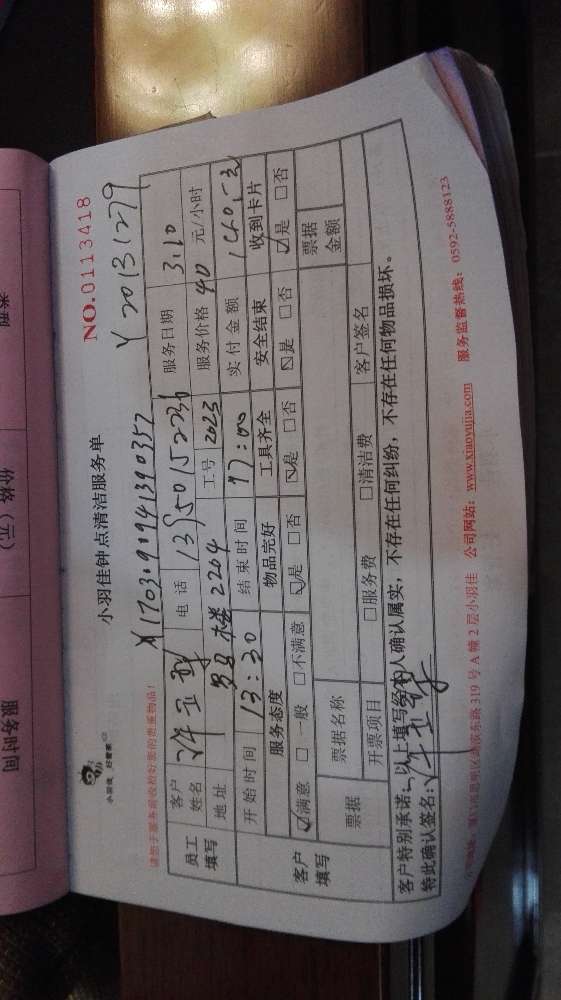 小羽佳钟点清洁服务单
NO.0113418
小羽佳 好管家
Y20131279
请您于服务前收检好您的贵重物品!
员工填写
客户姓名
电话
服务日期 3.10
地址 2204
工号 2023
服务价格 40 元/小时
开始时间 13:30
结束时间 17:00
实付金额
客户填写
服务态度 物品完好 工具齐全 安全结束 收到卡片
☑满意 □一般 □不满意 ☑是 □否 ☑是 □否 ☑是 □否 ☑是 □否
票据
票据名称
票据金额
开票项目 □服务费 □清洁费 客户签名
客户特别承诺:以上填写经本人确认属实,不存在任何纠纷,不存在任何物品损坏。
特此确认签名:
东路 319 号 A 幢 2 层小羽佳 公司网站:www.xiaoyujia.com 服务监督热线:0592-5888123
类型
价格(元)
服务时间